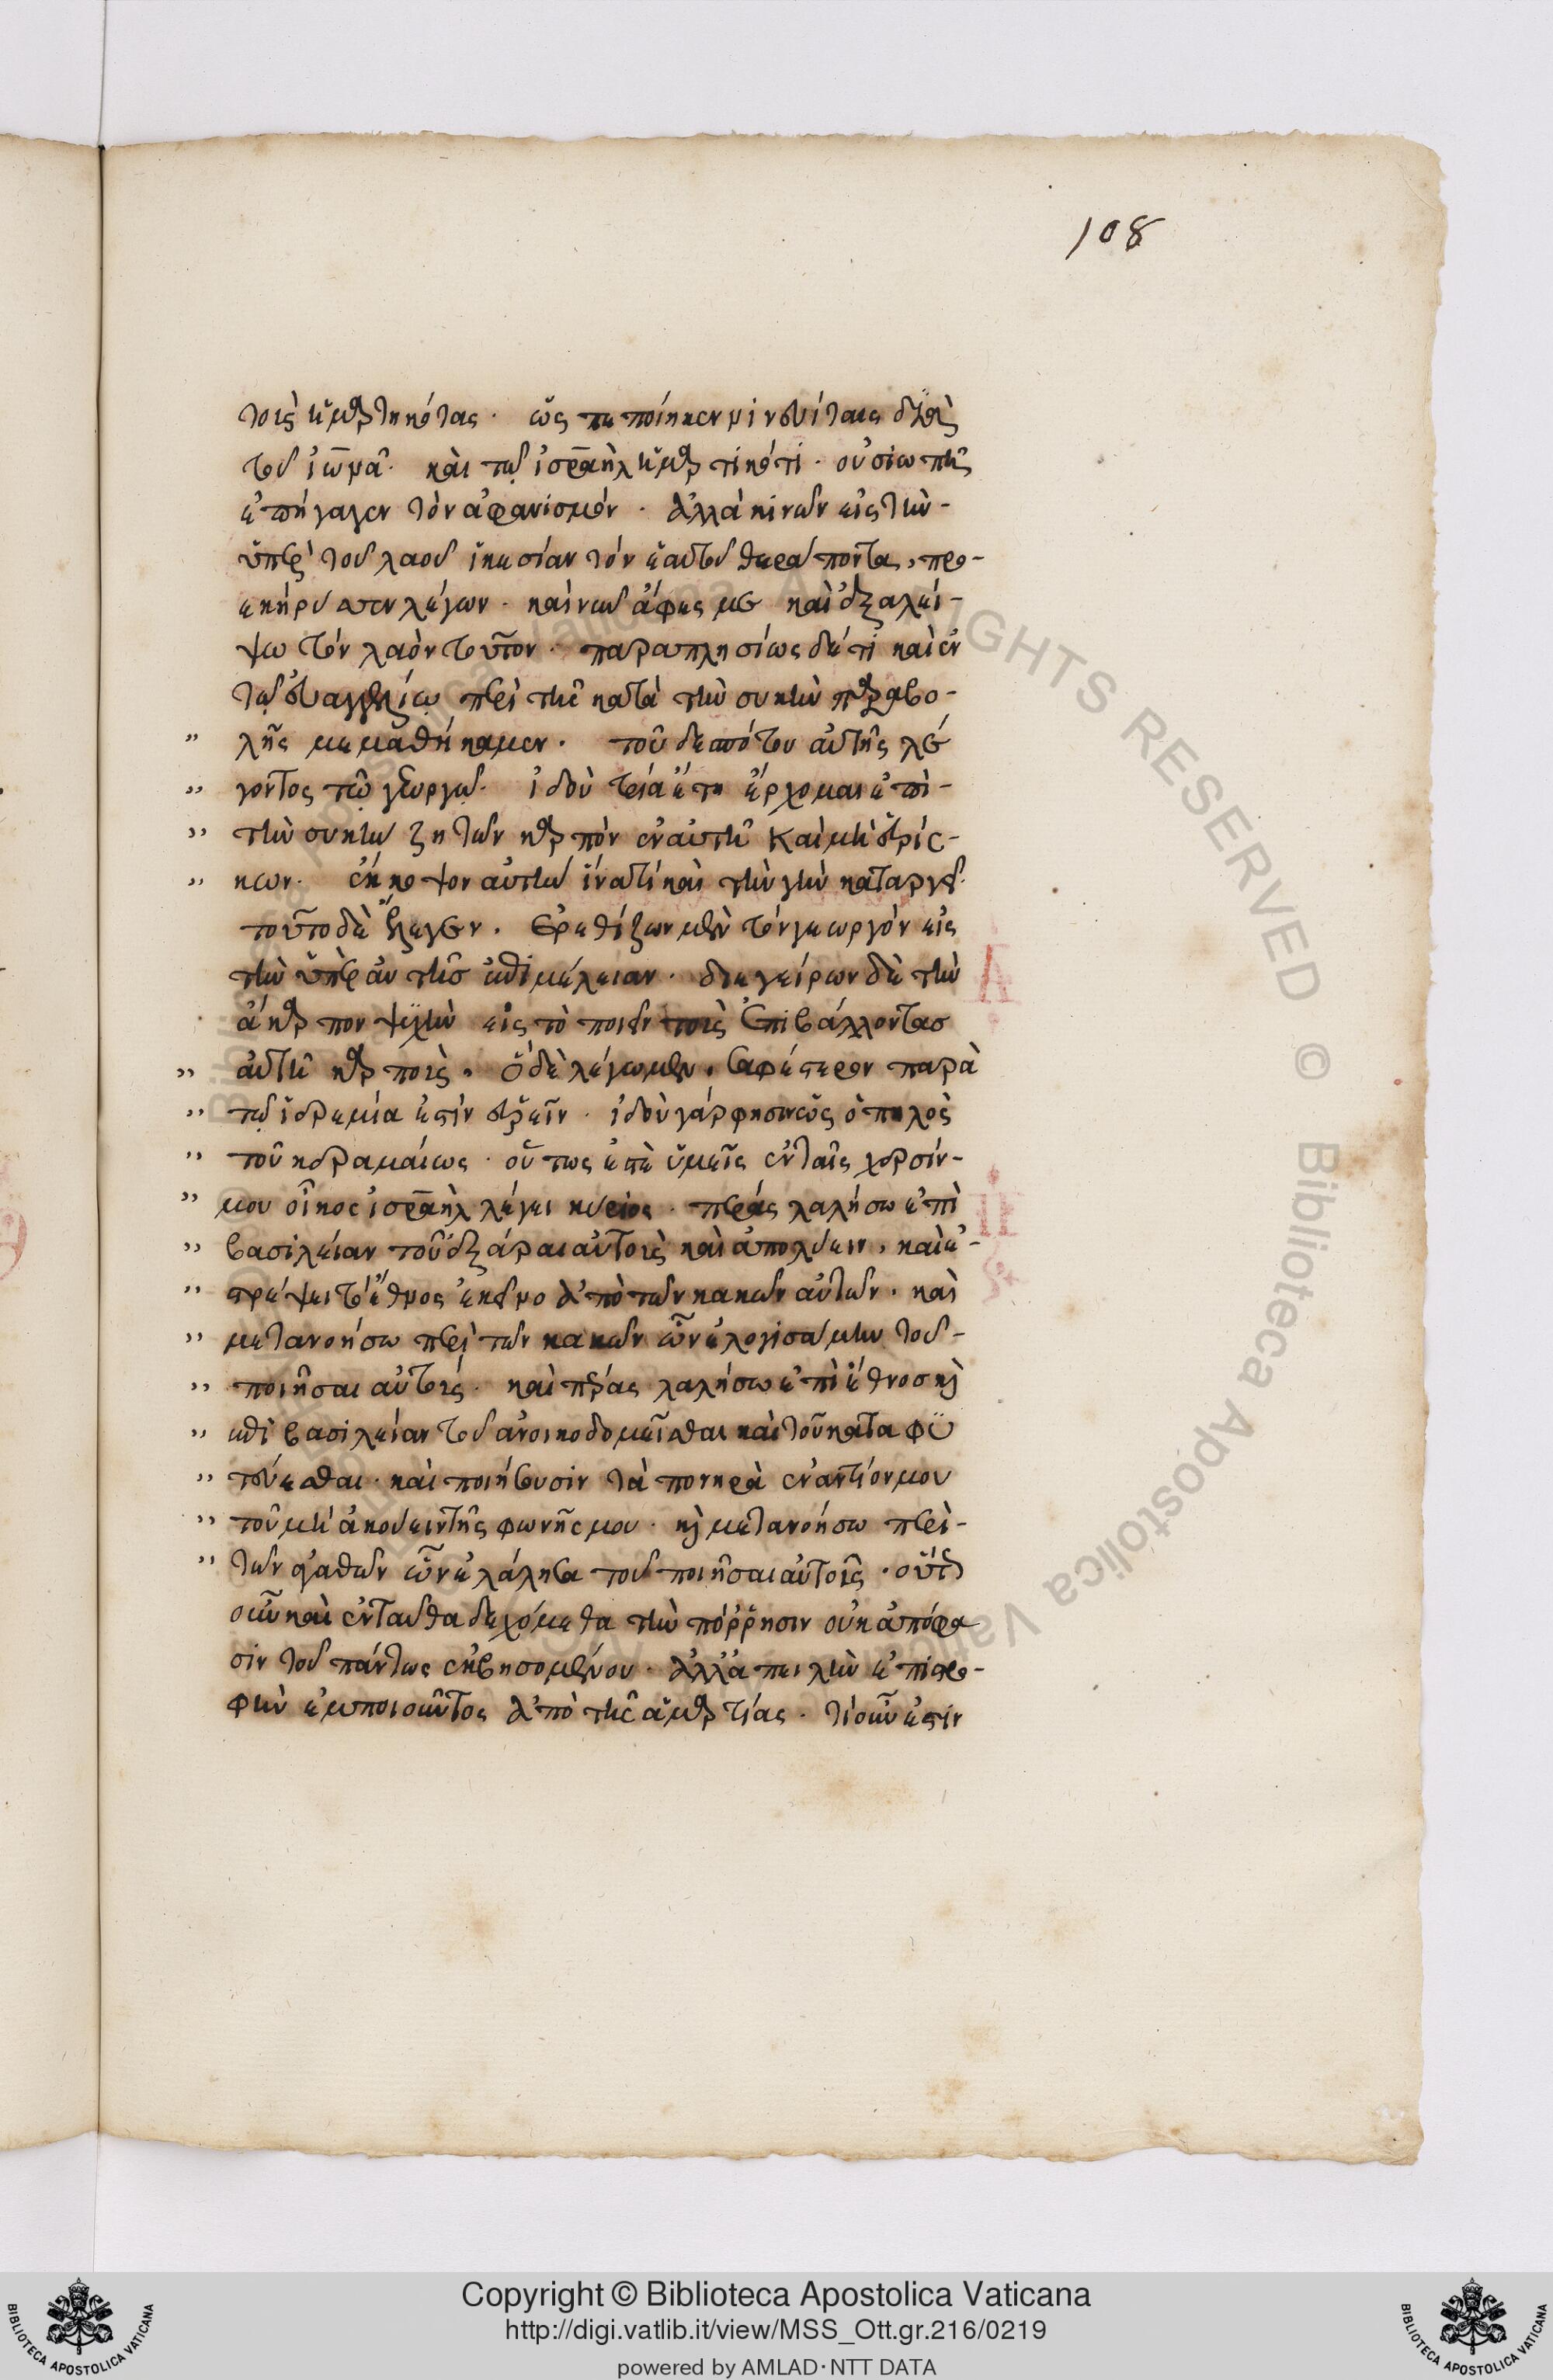 108
τοὺς ἡμαρτηκότας. ὡς πεποίηκεν νινευίταις διὰ
τοῦ ἰωνᾶ. καὶ τῷ ἰσραὴλ ἡμαρτικότι. οὐ σιωπῇ
ἐπήγαγεν τὸν ἀφανισμόν. ἀλλὰ κινῶν εἰς τὴν-
ὑπὲρ τοῦ λαοῦ ἱκεσίαν τὸν ἑαυτοῦ θεράποντα, προ-
εκήρυσσεν λέγων. καὶ νῦν ἄφες με καὶ ἐξαλεί-
ψω τὸν λαὸν τοῦτον. παραπλησίως δέ τι καὶ ἐν
τῷ εὐαγγελίῳ περὶ τῆς κατὰ τὴν συκὴν παραβο-
" λῆς μεμαθήκαμεν. τοῦ δεσπότου αὐτῆς λέ
" γοντος τῷ γεωργῷ. ἰδοὺ τρία ἔτη ἔρχομαι ἐπὶ-
" τὴν συκὴν ζητῶν καρπὸν ἐν αὐτῇ καὶ μὴ εὑρίσ-
" κων. ἔκκοψον αὐτὴν ἱνατί καὶ τὴν γῆν καταργεῖ.
τοῦτο δὲ ἔλεγεν. ἐρεθίζων μὲν τὸν γεωργὸν εἰς
τὴν ὑπὲρ αὐτῆς ἐπιμέλειαν. διεγείρων δὲ τὴν
ἄκαρπον ψυχὴν εἰς τὸ ποιεῖν τοὺς ἐπιβάλλοντας
" αὐτῇ καρπούς. ὃ δὲ λέγωμεν, σαφέστερον παρὰ
" τῷ ἱερεμία ἐστὶν εὑρεῖν. ἰδοὺ γάρ φησιν ὡς ὁ πηλὸς
" τοῦ κεραμαίως. οὕτως ἐστὲ ὑμεῖς ἐν ταῖς χερσίν-
" μου οἶκος ἰσραὴλ λέγει κύριος. πέρας λαλήσω ἐπὶ
" βασιλείαν τοῦ ἐξάραι αὐτοὺς καὶ ἀπολύειν, καὶ ἐ-
" πιστρέψει τὸ ἔθνος ἐκεῖνο ἀπὸ τῶν κακῶν αὐτῶν. καὶ
" μετανοήσω περὶ τῶν κακῶν ὧν ἐλογισάμην τοῦ-
" ποιῆσαι αὐτοῖς. καὶ πέρας λαλήσω ἐπὶ ἔθνος καὶ
" ἐπὶ βασιλείαν τοῦ ἀνοικοδομεῖσθαι καὶ τοῦ καταφυ
" τεύεσθαι. καὶ ποιήσουσιν τὰ πονηρὰ ἐναντίον μου
" τοῦ μὴ ἀκούειν τῆς φωνῆς μου. καὶ μετανοήσω περὶ-
" τῶν ἀγαθῶν ὧν ἐλάλησα τοῦ ποιῆσαι αὐτοῖς. οὕτως
οὖν καὶ ἐνταῦθα δεχόμεθα τὴν πόρρησιν οὐκ ἀπόφα
σιν τοῦ πάντως ἐκβησομένου. ἀλλὰ ἀπειλὴν ἐπιστρο-
φὴν ἐμποιοῦντος ἀπὸ τῆς ἁμαρτίας. τί οὖν ἐστιν
Copyright © Biblioteca Apostolica Vaticana
http://digi.vatlib.it/view/MSS_Ott.gr.216/0219
powered by AMLAD·NTT DATA